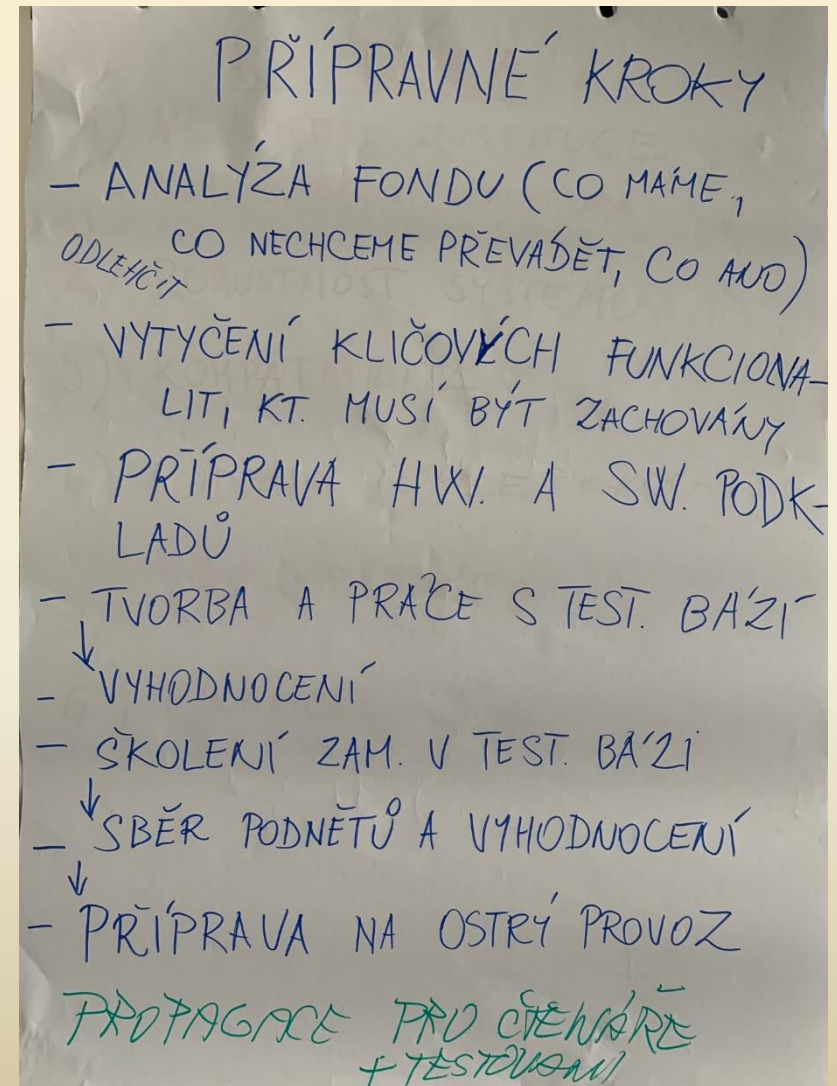 PŘÍPRAVNÉ KROKY
– ANALÝZA FONDU (CO MÁME,
CO NECHCEME PŘEVÁDĚT, CO ANO)
ODLEHČIT
– VYTYČENÍ KLIČOVÝCH FUNKCIONA–
LIT, KT. MUSÍ BÝT ZACHOVÁNY
– PŘÍPRAVA HW. A SW. PODK–
LADŮ
– TVORBA A PRÁCE S TEST. BÁZÍ
↓
– VYHODNOCENÍ
– ŠKOLENÍ ZAM. V TEST. BÁZI
↓
– SBĚR PODNĚTŮ A VYHODNOCENÍ
↓
– PŘÍPRAVA NA OSTRÝ PROVOZ
PROPAGACE PRO ČTENÁŘE
+ TESTOVÁNÍ